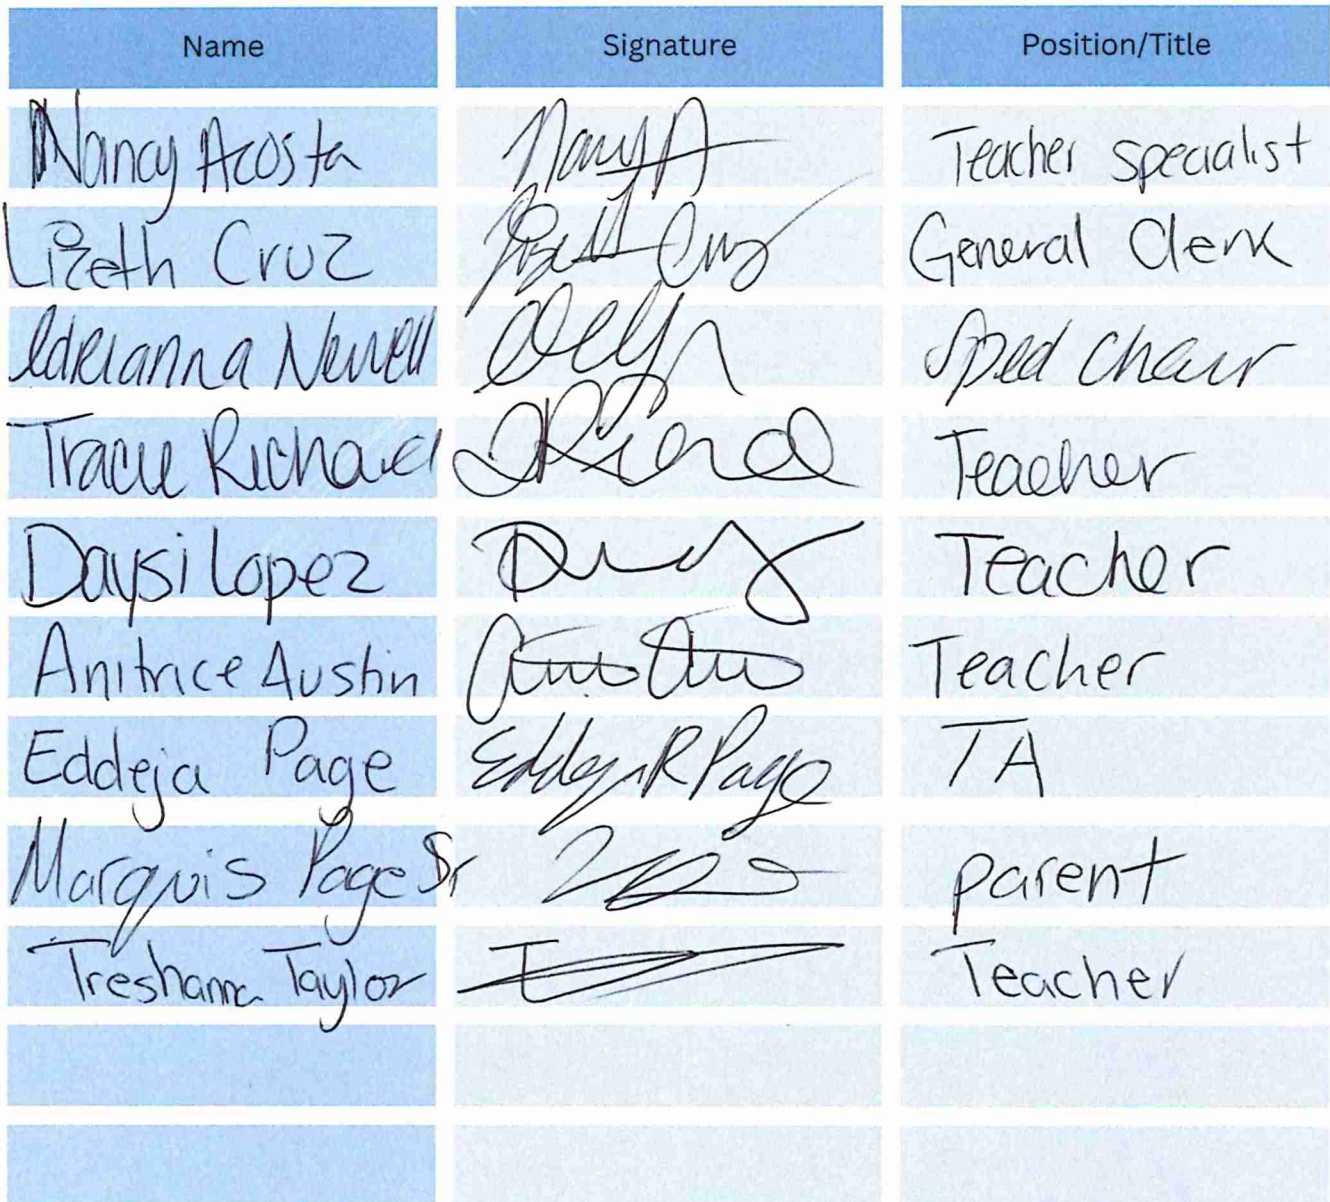 Name Signature Position/Title
Nancy Acosta Nancy A Teacher specialist
Lizeth Cruz Lizeth Cruz General Clerk
Adrianna Newell Sped chair
Tracie Richard Teacher
Daysi Lopez Teacher
Anitrice Austin Teacher
Eddeja Page Eddeja R Page TA
Marquis Page Sr parent
Treshanna Taylor Teacher